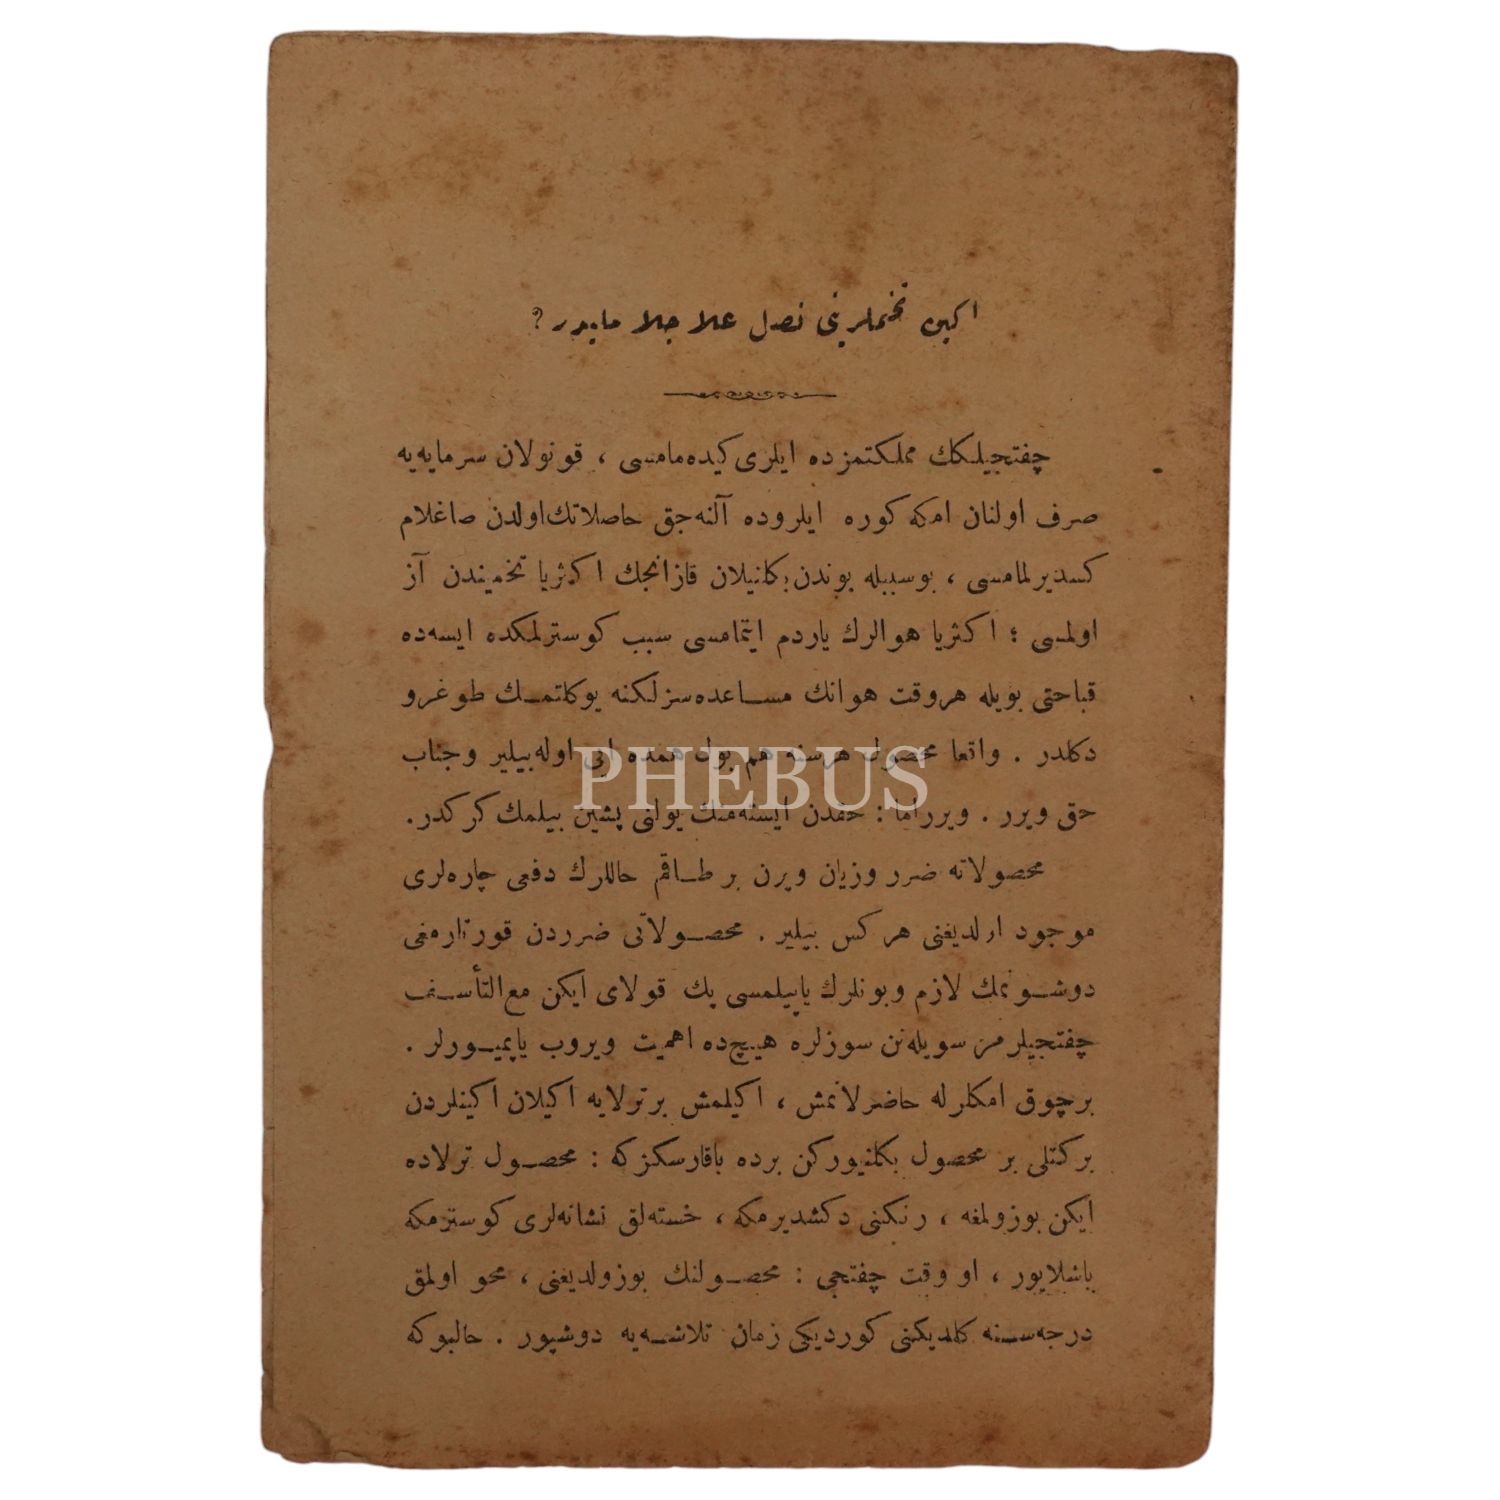 اكين تخملرينى نصل علاجلامليدر ؟
چفتجيلكك مملكتمزده ايلرى كيده‌مامسى ، قونولان سرمايه‌يه
صرف اولنان امكه كوره ايلروده آلنه‌جق حاصلاتك اولدن صاغلام
كسديرلمامسى ، بوسببله بوندن بكلنيلان قازانجك اكثريا تخميندن آز
اولمسى ؛ اكثريا هوالرك ياردم ايتمامسى سبب كوسترلمكده ايسه‌ده
قباحتى بويله هروقت هوانك مساعده‌سزلكنه يوكلتمك طوغرو
دكلدر . واقعا محصول هرسنه هم بول همده ايى اوله‌بيلير وجناب
حق ويرر . ويرراما : حقدن ايسته‌مك يولنى پشين بيلمك كركدر.
محصولاته ضرر وزيان ويرن بر طاقم حاللرك دفعى چاره‌لرى
موجود اولديغنى هركس بيلير . محصولاتى ضرردن قورتارمغى
دوشونمك لازم وبونلرك ياپيلمسى پك قولاى ايكن مع‌التأسف
چفتجيلرمز سويله‌نن سوزلره هيچ‌ده اهميت ويروب ياپميورلر .
برچوق امكلرله حاضرلانمش ، اكيلمش برترلايه اكيلان اكينلردن
بركتلى بر محصول بكلنيوركن برده باقارسكزكه : محصول ترلاده
ايكن بوزولمغه ، رنكنى دكشديرمكه ، خسته‌لق نشانه‌لرى كوسترمكه
باشلايور ، او وقت چفتجى : محصولنك بوزولديغنى ، محو اولمق
درجه‌سنه كلديكنى كورديكى زمان تلاشه‌يه دوشيور . حالبوكه
PHEBUS